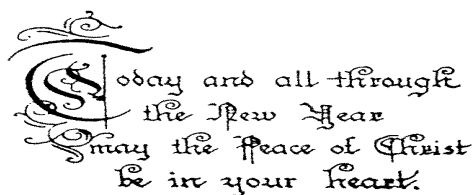 Today and all through
the New Year
may the Peace of Christ
be in your heart.